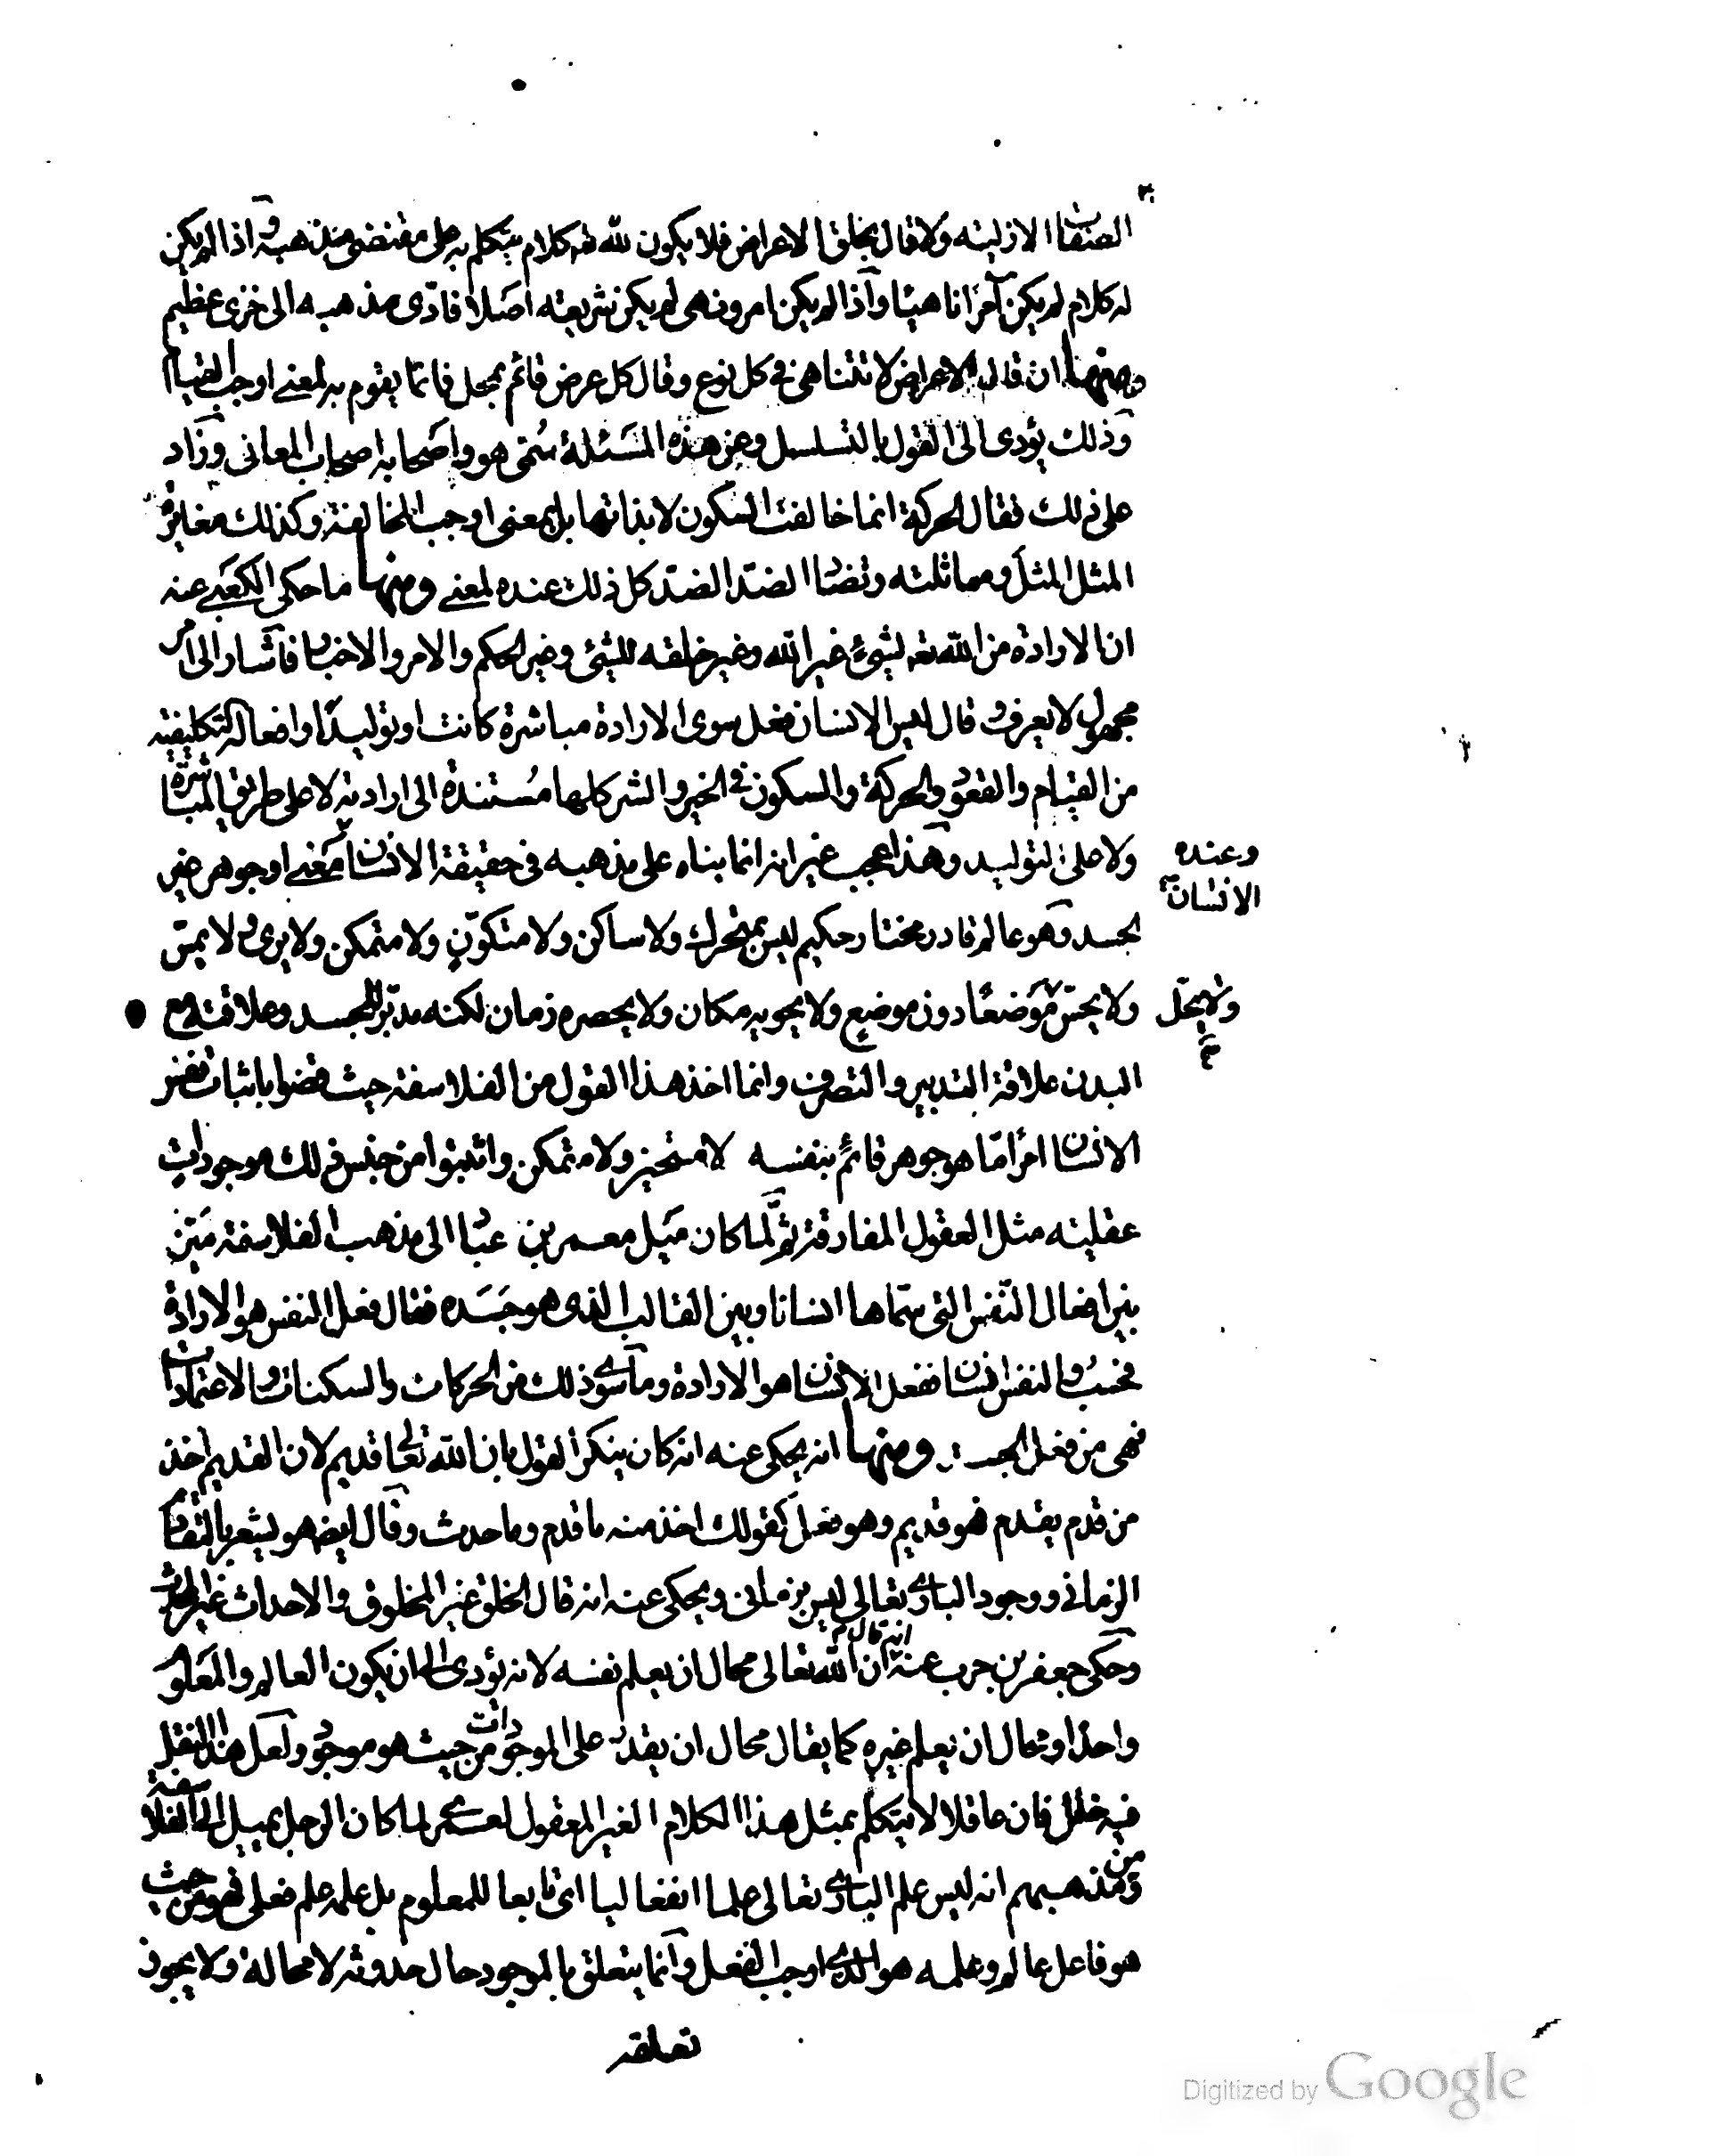 الصفات الازلية ولا قال بخلق الاعراض فلا يكون لله تعه كلام يتكلم به على مقتضى مذهبه واذا لم يكن
له كلام لم يكن آمرا ناهيا واذا لم يكن امر ونهى لم يكن شريعته اصلا فادّى مذهبه الى خزى عظيم
ومنها ان قال الاعراض لا تتناهى فى كل نوع وقال كل عرض قائم بمحل فانما يقوم به لمعنى اوجب القيام
وذلك يؤدى الى القول بالتسلسل وعن هذه المسئلة سُمّى هو واصحابه اصحاب المعانى وزاد
على ذلك فقال الحركة انما خالفت السكون لا بذاتها بل بمعنى اوجب المخالفة وكذلك مغايرة
المثل المثل ومماثلته وتضاد الضد الضد كل ذلك عنده لمعنى ومنها ما حكى الكعبى عنه
ان الارادة من الله تعه لشىء غير الله وغير خلقه للشىء وغير الحكم والامر والاخبار فاشار الى امر
مجهول لا يعرف و قال ليس للانسان فعل سوى الارادة مباشرة كانت او توليدا وافعاله التكليفية
من القيام والقعود والحركة والسكون فى الخير والشر كلها مُستندة الى ارادته لا على طريق المباشرة
ولا على التوليد وهذا عجب غير انه انما بناه على مذهبه فى حقيقة الانسان وعنده الانسان معنى او جوهر غير
الجسد وهو عالم قادر مختار حكيم ليس بمتحرك ولا ساكن ولا متكوّن ولا متمكن ولا يرى ولا يمسّ
ولا يحسّ ولا يحلّ موضعًا دون موضع ولا يحويه مكان ولا يحصره زمان لكنه مدبّر للجسد وعلاقته مع
البدن علاقة التدبير والتصرف وانما اخذ هذا القول من الفلاسفة حيث قضوا باثبات نفس
الانسان امرًا مّا هو جوهر قائم بنفسه لا متحيز ولا متمكن واثبتوا من جنس ذلك موجودات
عقلية مثل العقول المفارقة ثم لما كان ميل معمر بن عباد الى مذهب الفلاسفة ميّز
بين افعال النّفس التى سمّاها انسانا وبين القالب الذى هو جَسَده فقال فعل النفس هو الارادة
فحسب والنفس انسان ففعل الانسان هو الارادة وما سوى ذلك من الحركات والسكنات والاعتمادات
فهى من فعل الجسد ومنها انه يحكى عنه انه كان ينكر القول بان الله تعالى قديم لان القديم اخذ
من قدم يقدم فهو قديم وهو فعل كقولك اخذ منه ما قدم وما حدث وقال ايضه هو يشعر بالتقادم
الزمانى ووجود البارى تعالى ليس بزمانى ويحكى عنه انه قال الخلق غير المخلوق والاحداث غير المحدث
وحكى جعفر بن حرب عنه انه قال ان الله تعالى محال ان يعلم نفسه لانه يؤدى الى ان يكون العالم والمعلوم
واحدا ومحال ان يعلم غيره كما يقال محال ان يقدر على الموجودات من حيث هو موجود ولعل هذا النقل
فيه خلل فان عاقلا لا يتكلم بمثل هذا الكلام الغير المعقول لعمرى لما كان الرجل يميل الى الفلاسفة
ومن مذهبهم انه ليس علم البارى تعالى علما انفعاليا اى تابعا للمعلوم بل علمه علم فعلى فهو من حيث
هو فاعل عالم وعلمه هو الذى اوجب الفعل وانما يتعلق بالموجود حال حدوثه لا محالة ولا يجوز
تعلقه
Digitized by Google